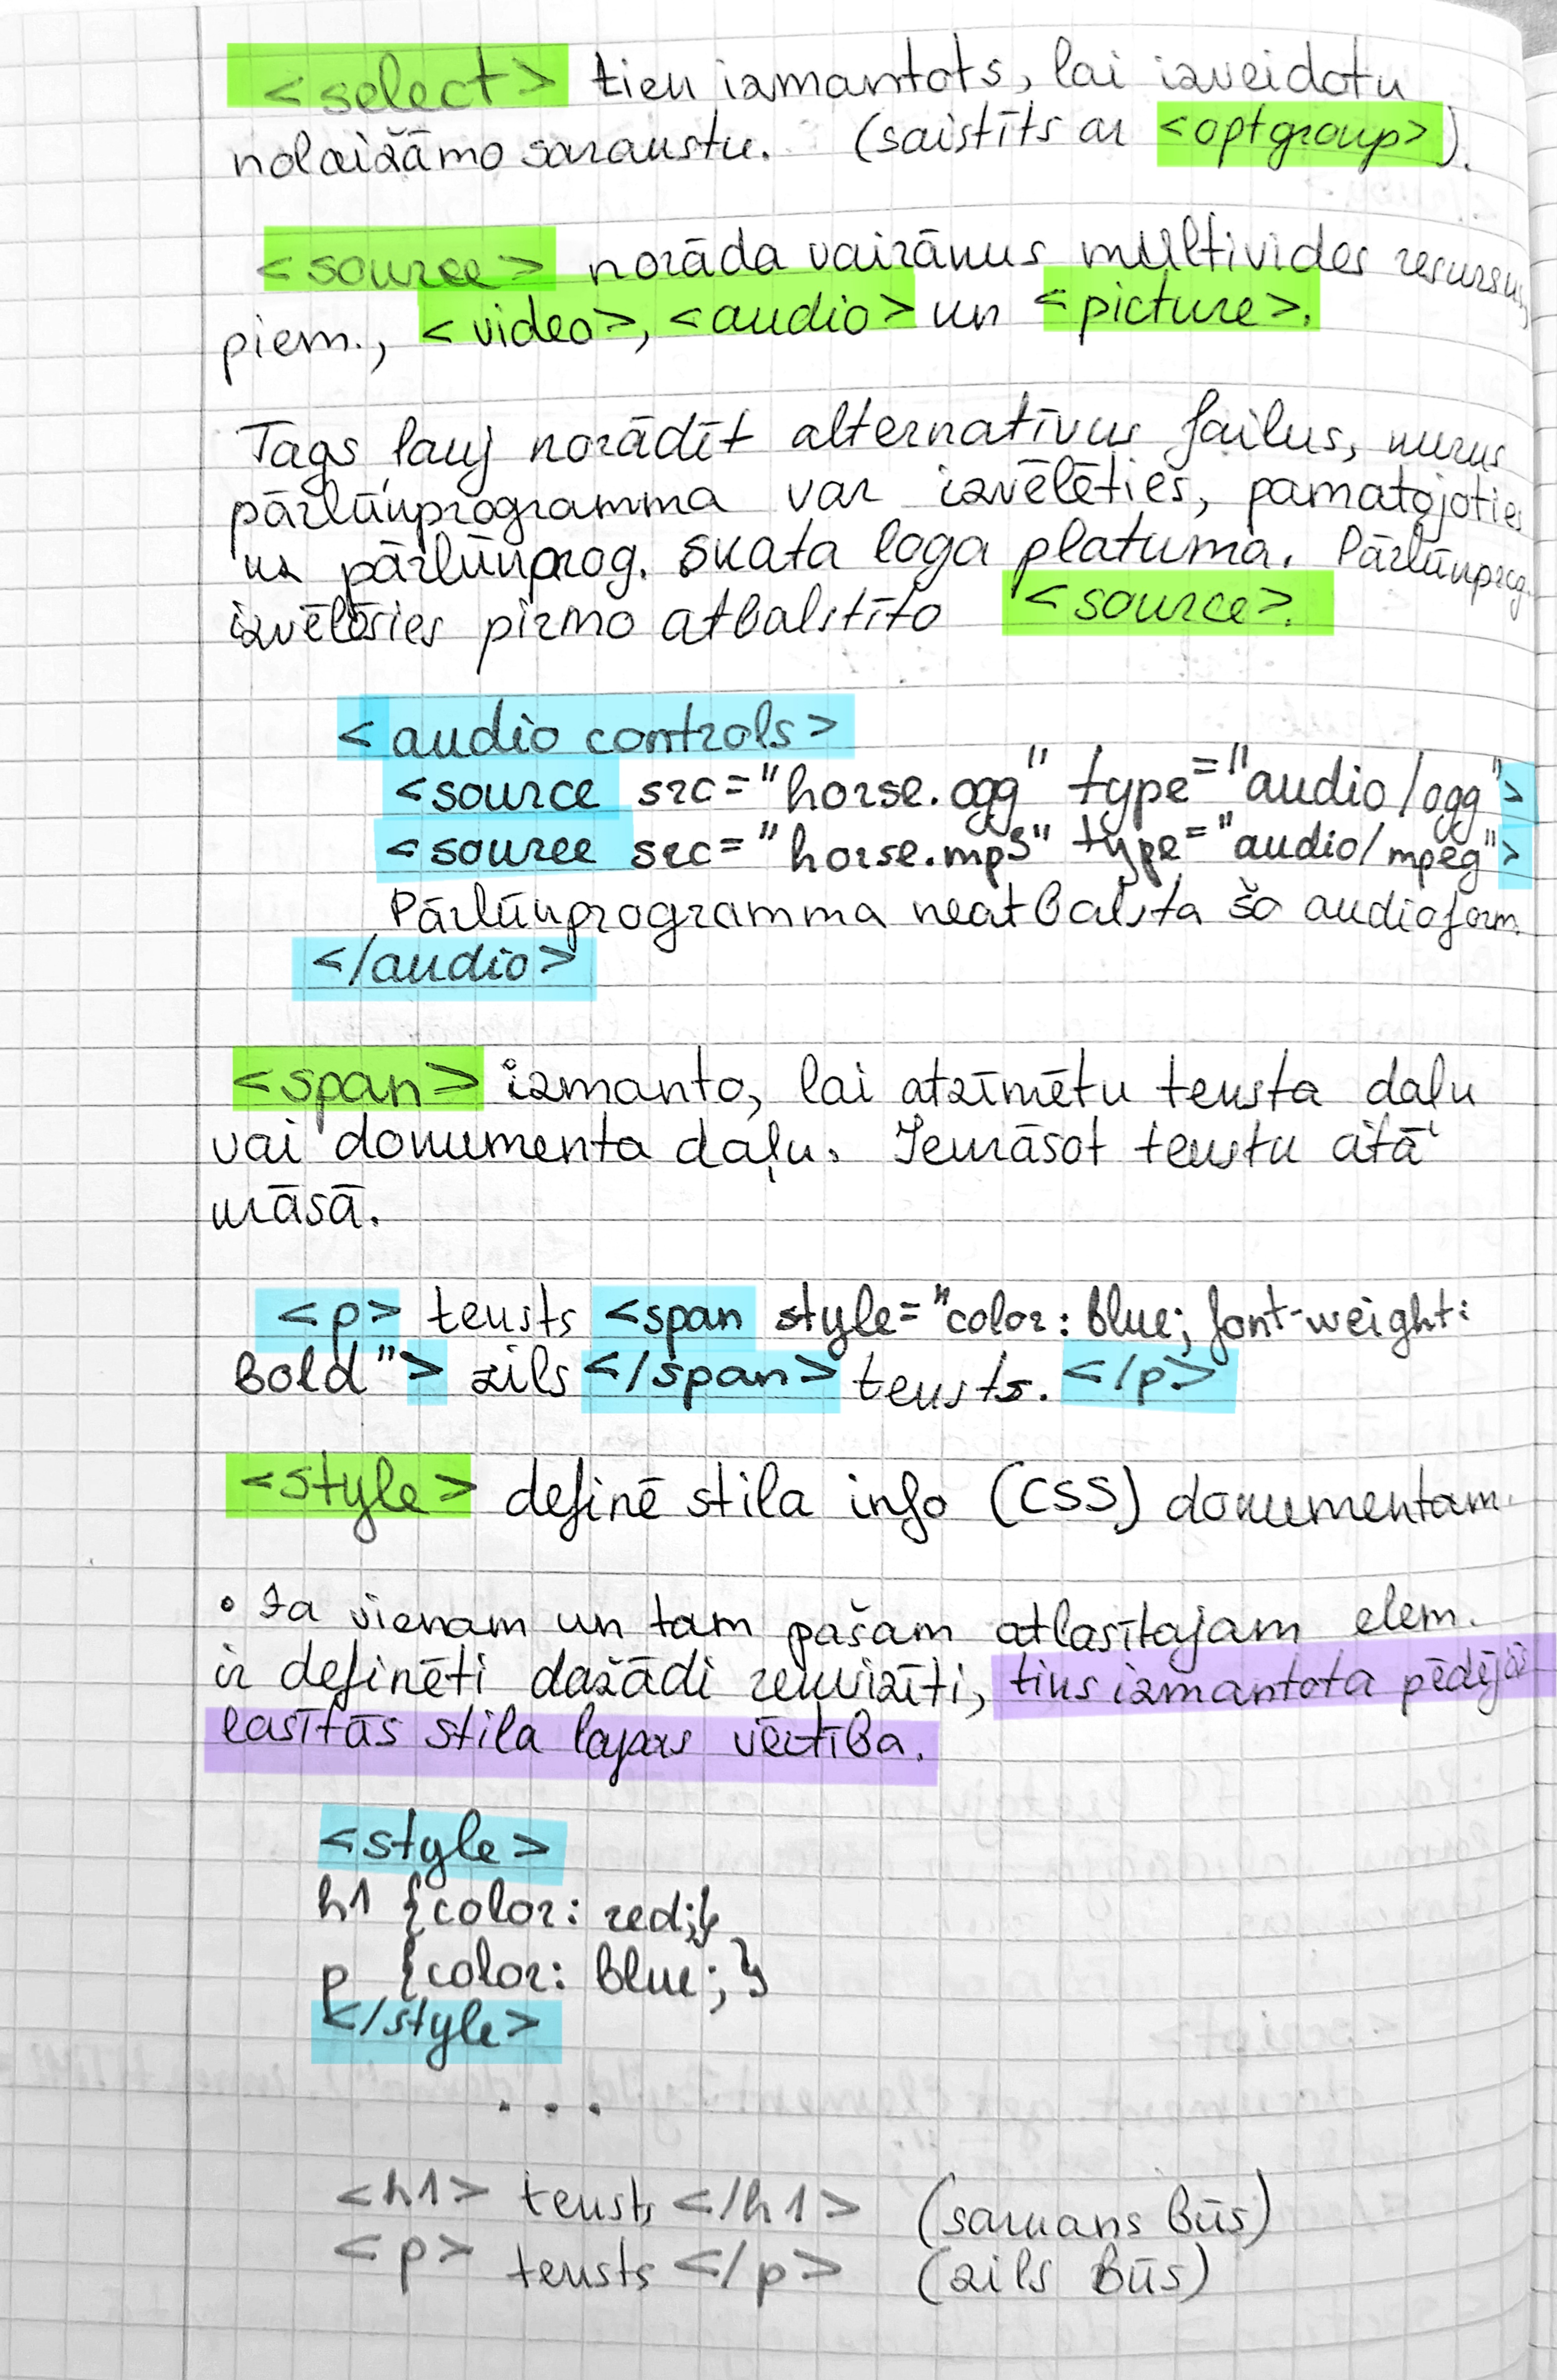 <select> tiek izmantots, lai izveidotu
nolaižāmo sarakstu. (saistīts ar <optgroup>).
<source> norāda vairākus multivides resursus,
piem., <video>, <audio> un <picture>.
Tags ļauj norādīt alternatīvus failus, kurus
pārlūkprogramma var izvēlēties, pamatojoties
uz pārlūkprog. skata loga platuma. Pārlūkprog.
izvēlēsies pirmo atbalstīto <source>.
<audio controls>
<source src="horse.ogg" type="audio/ogg">
<source src="horse.mp3" type="audio/mpeg">
Pārlūkprogramma neatbalsta šo audioform.
</audio>
<span> izmanto, lai atzīmētu teksta daļu
vai dokumenta daļu. Iekrāsot tekstu citā
krāsā.
<p> teksts <span style="color: blue; font-weight:
bold"> zils </span> teksts. </p>
<style> definē stila info (CSS) dokumentam.
• Ja vienam un tam pašam atlasītajam elem.
ir definēti dažādi rekvizīti, tiks izmantota pēdējās
lasītās stila lapas vērtība.
<style>
h1 {color: red;}
p {color: blue;}
</style>
...
<h1> teksts </h1> (sarkans būs)
<p> teksts </p> (zils būs)